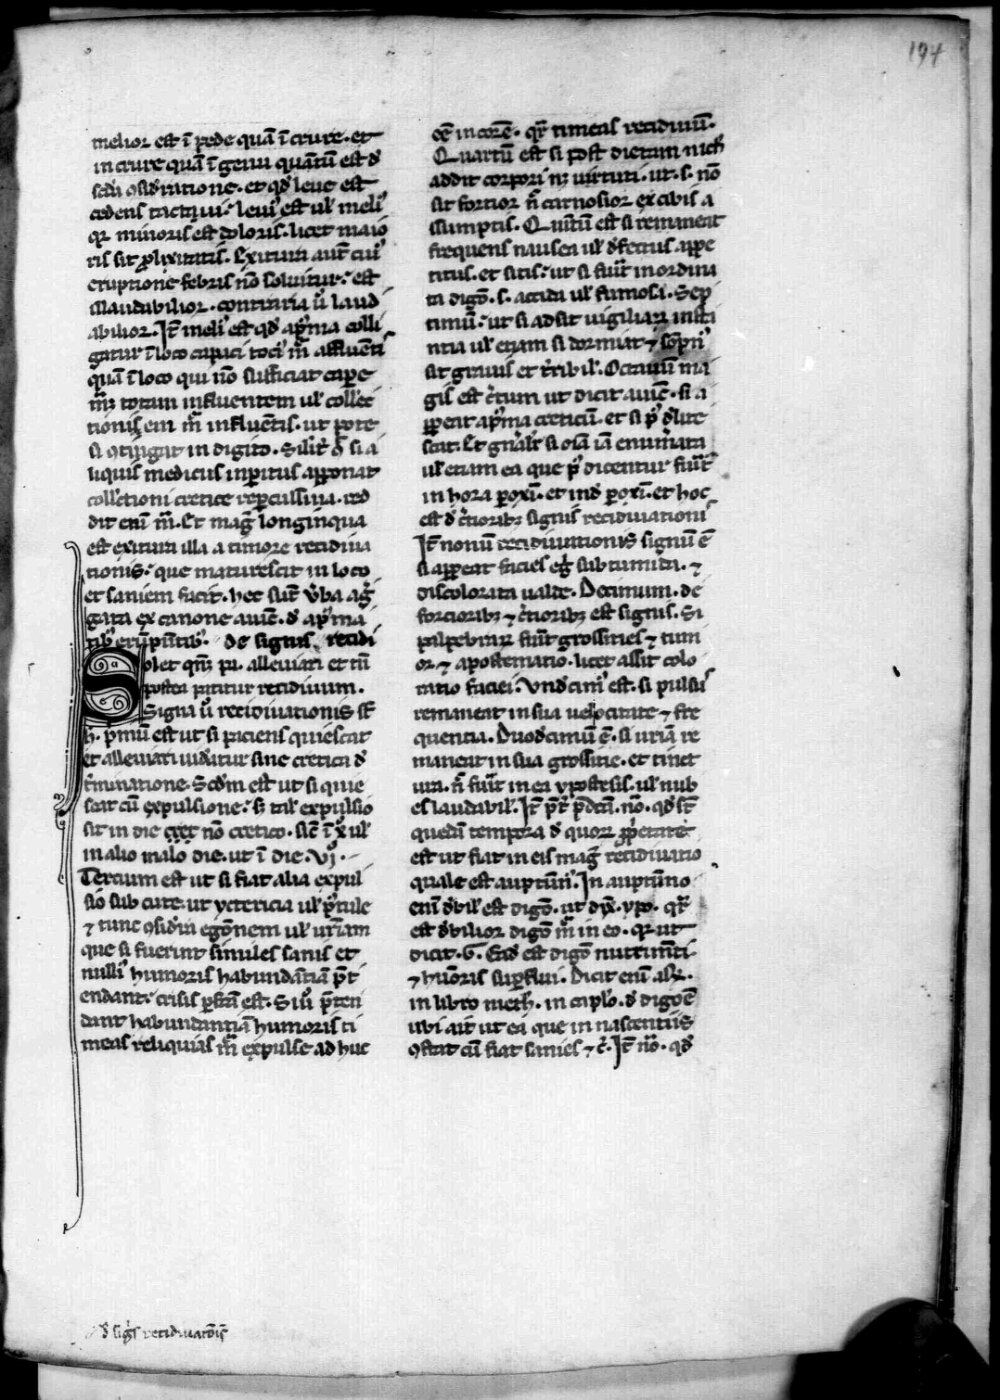 194
melior est ī pede quā ī crure. et
in crure quā ī genu quātū est đ
et qđ leue est
cedens tactui. leui' est ul' meli'
qr minoris est doloris. licet maio
ris sit plixitatis. Exitura aut̄ cui'
eruptione febris nō soluitur. est
illaudabilior. contraria ū laud
abilior. It̄ meli' est qđ ap̄ma colli
gatur ī loco capaci toci' m̄ affluenti'
quā ī loco qui nō sufficiat capere
m̄ totam influentem ul' collec
tionis em m̄ influētis. ut pote
si 9tingat in digito. Silit̄ si a
liquis medicus inperitus apponat
collectioni cretice repercussiua. red
dit eni m̄. Et maḡ longinqua
est exitura illa a timore recidiua
tionis. que maturescit in loco
et saniem facit. hec sūt ūba aḡ
gata ex canone auic̄. đ ap̄ma
tib' erūpētib'. de signis recidi
Solet qm̄ pa. alleuiari et tn̄
postea patitur recidiuum.
Signa ū recidiuationis st̄
h̄. pmū est ut si paciens quiescat
et alleuiari uideatur sine cretica đ
t̄minatione. Scđm est ut si quie
scat cū expulsione. si tal' expulsio
sit in die nō cretico. sic̄ ī ul'
in alio malo die. ut ī die. vj.
Tercium est ut si fiat alia expul
sio sub cute. ut yctericia ul' pustule
⁊ tunc 9siđa egōnem ul' urīam
que si fuerint similes sanis et
nulli' humoris habundātiā p̄t
endant. crisis pfcā est. Si ū p̄ten
dant habundantiā humoris ti
meas reliquias m̄ expulse ad huc
cē in corē. qr̄ timeas recidiuū.
Quartū est si post dietam nich'
addit corpori nɜ uirtuti. ut. s. nō
sit fortior n̄ carnosior ex cibis a
ssumptis. Quītū est si remaneat
frequens nausea ul' đfectus appe
titus. et sitis. ut si fiūt inordina
ta digō. s. acida ul' fumosa. Sep
timū. ut si adsit uigiliaꝝ insti
ntia ul' etiam si dormiat ⁊ sōpn'
sit grauis et t̄ribil'. Octauū ma
gis est c̄tum ut dicit auic̄. si a
ppareat ap̄ma creticū. et si p' đlite
scat. Et gn̄alr̄ si oīa iā enumāta
ul' etiam ea que p' dicentur fiūt
in hora poxī. et inđ poxī. et hoc
est đ c̄tioribɜ signis recidiuationi'
It̄ nonū recidiuationis signū ē
si appeat facies eḡ subtumida. ⁊
discolorata ualde. Decimum. de
forcioribɜ ⁊ c̄tioribɜ est signis. Si
palpebraꝝ fiūt grossities ⁊ tum
or. ⁊ apostematio. licet assit colo
ratio faciei. Vnđcim' est. si pulsus
remaneat in sua uelocitate ⁊ fre
quentia. Duođcimū ē. si urīa re
maneat in sua grossitie. et tinct
ura. n̄ fiūt in ea ypostasis. ul' nub
es laudabil'. It̄ pr̄ p̄dcā. nō. qđ st̄
quedā tempora đ quoꝝ p̄petate
est ut fiat in eis maḡ recidiuatio
quale est autumn'. In autumno
eni đbil' est digō. ut dīx. ypo. qr̄
est đbilior digō m̄ in eo. qr ut
dicit. G. Eađ est digō nutrimēti
⁊ hūoris supflui. Dicit eni aR'.
in libro meth. in caplo. đ digōē
ubi ait ut ea que in nascentiis
9stat cū fiat sanies ⁊ c̄. It̄ nō. qđ
đ siḡs recidiuatōis